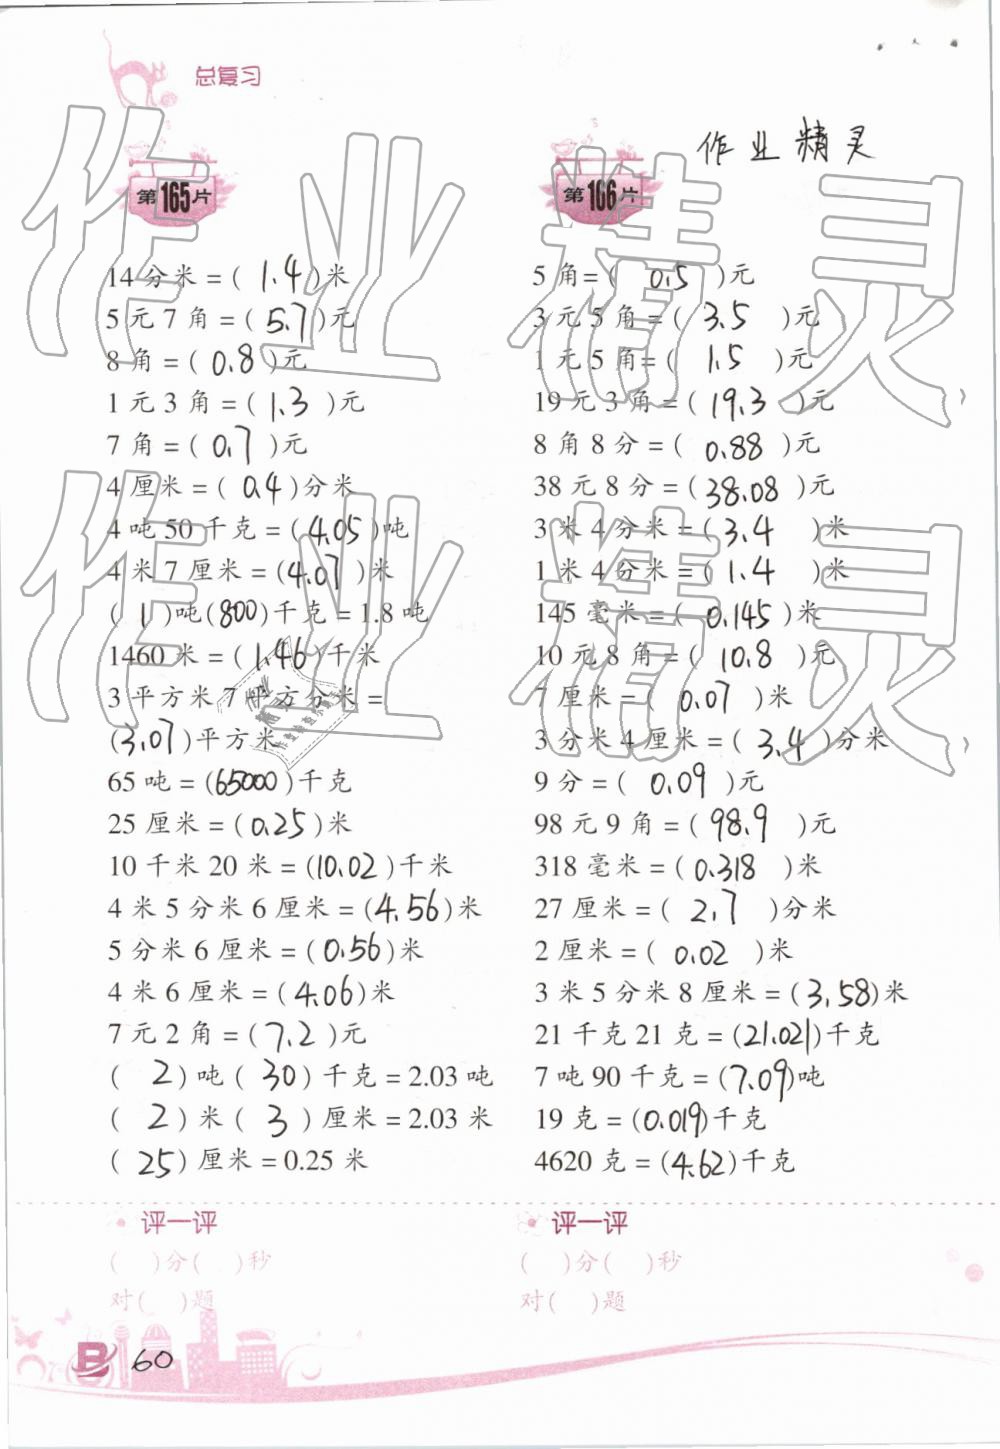 总复习
作业精灵
第165片
14分米=(1.4)米
5元7角=(5.7)元
8角=(0.8)元
1元3角=(1.3)元
7角=(0.7)元
4厘米=(0.4)分米
4吨50千克=(4.05)吨
4米7厘米=(4.07)米
(1)吨(800)千克=1.8吨
1460米=(1.46)千米
3平方米7平方分米=
(3.07)平方米
65吨=(65000)千克
25厘米=(0.25)米
10千米20米=(10.02)千米
4米5分米6厘米=(4.56)米
5分米6厘米=(0.56)米
4米6厘米=(4.06)米
7元2角=(7.2)元
(2)吨(30)千克=2.03吨
(2)米(3)厘米=2.03米
(25)厘米=0.25米
评一评
( )分( )秒
对( )题
第166片
5角=(0.5)元
3元5角=(3.5)元
1元5角=(1.5)元
19元3角=(19.3)元
8角8分=(0.88)元
38元8分=(38.08)元
3米4分米=(3.4)米
1米4分米=(1.4)米
145毫米=(0.145)米
10元8角=(10.8)元
7厘米=(0.07)米
3分米4厘米=(3.4)分米
9分=(0.09)元
98元9角=(98.9)元
318毫米=(0.318)米
27厘米=(2.7)分米
2厘米=(0.02)米
3米5分米8厘米=(3.58)米
21千克21克=(21.021)千克
7吨90千克=(7.09)吨
19克=(0.019)千克
4620克=(4.62)千克
评一评
( )分( )秒
对( )题
B 60
作业精灵
作业精灵